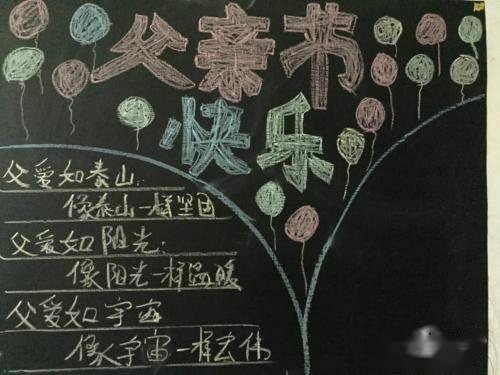 父亲节
快乐
父爱如泰山：
像泰山一样坚固
父爱如阳光：
像阳光一样温暖
父爱如宇宙
像宇宙一样宏伟